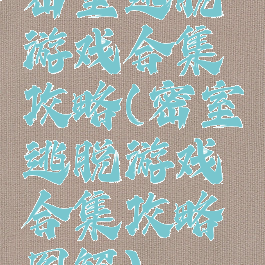 密室逃脱
游戏合集
攻略(密室
逃脱游戏
合集攻略
图解)